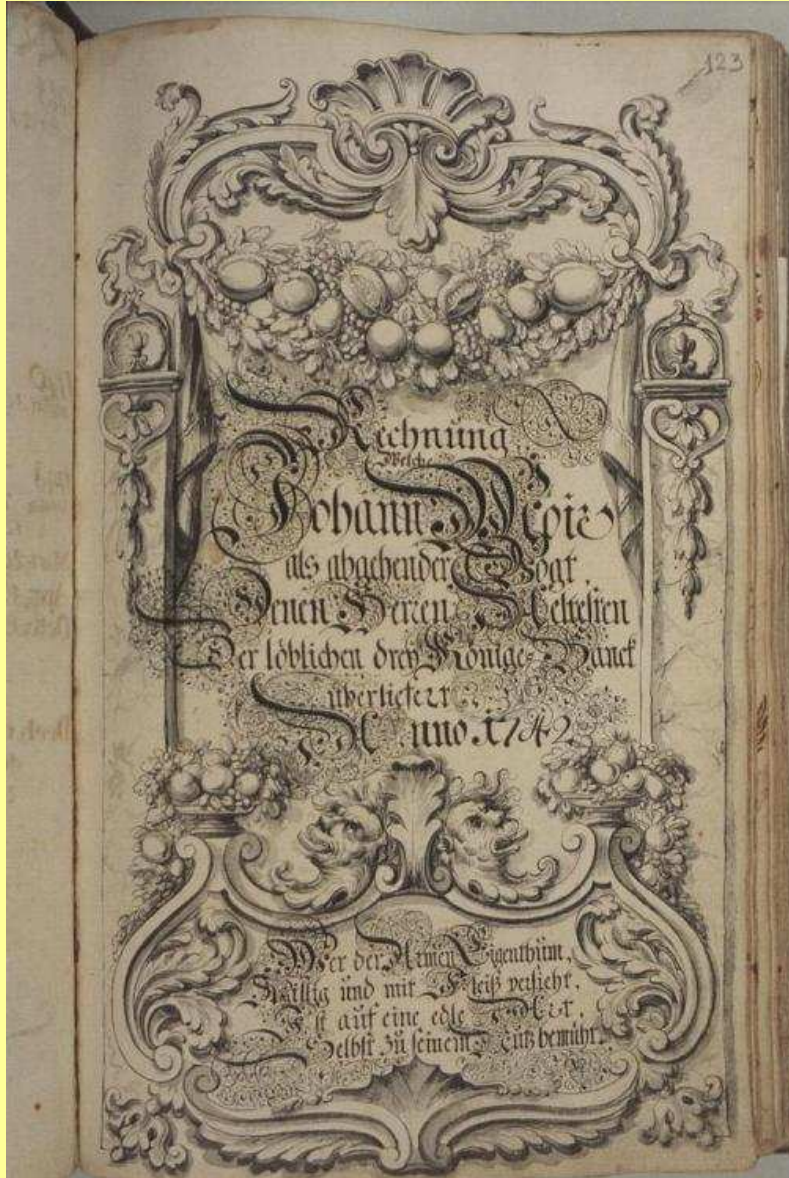 123
Rechnung
Welche
Johann
als abgehender Vogt
Denen Herren Aeltesten
Der löblichen drey Könige-Banck
überliefert
Anno 1742
Wer der Armen Eigenthüm,
Willig und mit Fleiß versieht,
Ist auf eine edle Art,
Selbst zu seinem Nutz bemüht.